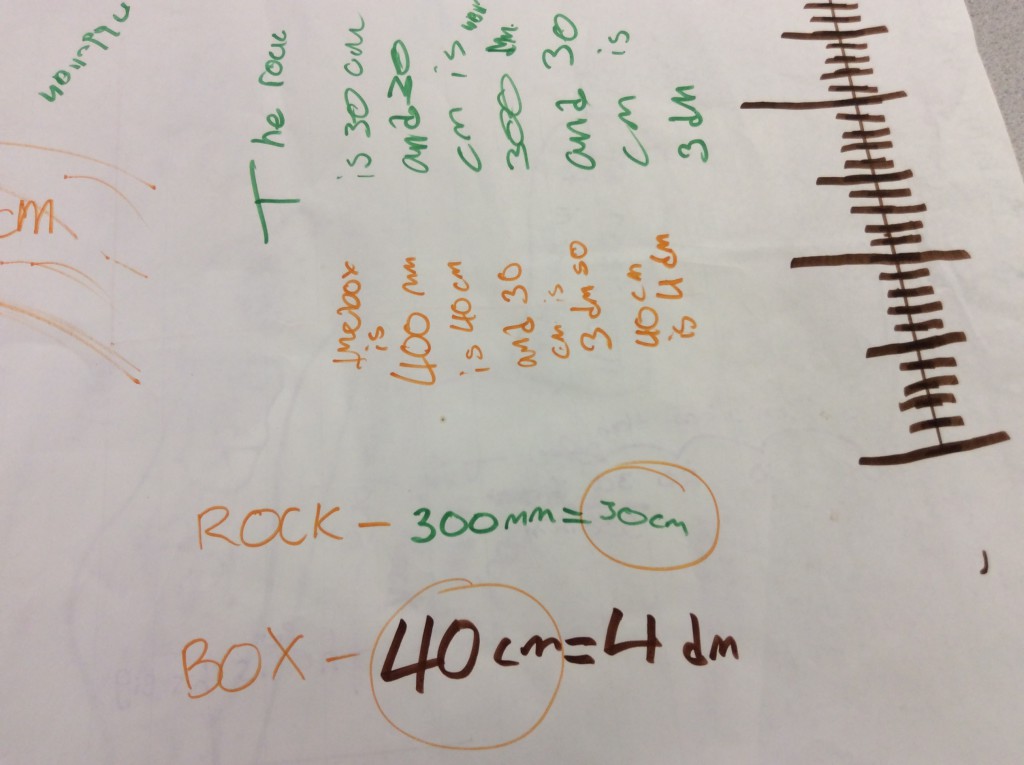 cm
The rock
is 30 cm
and 30
cm is
300 dm.
and 30
cm is
3 dm
the box
is
400 mm
is 40cm
and 30
cm is
3 dm so
40cm
is 4 dm
ROCK - 300mm = 30cm
BOX - 40 cm = 4 dm